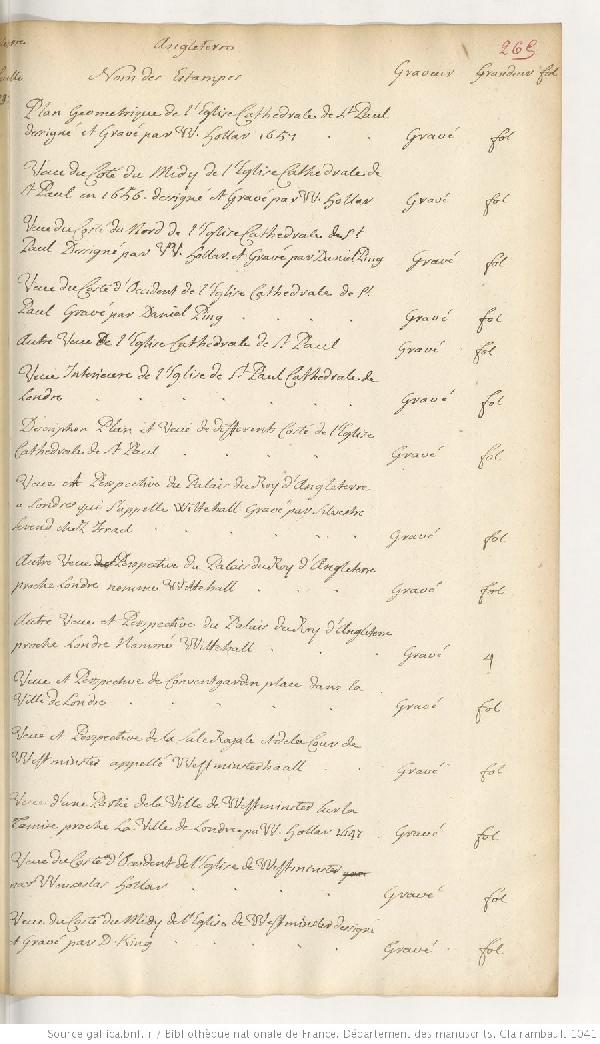 Angleterre 265
Nom des Estampes Graveur Grandeur fol
Plan Geometrique de l'Eglise Cathedrale de St Paul
designé et Gravé par W. Hollar 1657 Gravé fol
Veue du Coté du Midy de l'Eglise Cathedrale de
St Paul en 1656. designé et Gravé par W. Hollar Gravé fol
Veue du Costé du Nord de l'Eglise Cathedrale de St
Paul Dessigné par W. Hollar et Gravé par Daniel King Gravé fol
Veue du Costé d'Occident de l'Eglise Cathedrale de St
Paul Gravé par Daniel King Gravé fol
Autre Veue de l'Eglise Cathedrale de St Paul Gravé fol
Veue Interieure de l'Eglise de St Paul Cathedrale de
Londre Gravé fol
Plan et Veue de differents Costé de l'Eglise
Cathedrale de St Paul Gravé fol
Veue et Perspective du Palais du Roy d'Angleterre
a Londres qui s'appelle Wittehall Gravé par Silvestre
se vend chez Israel Gravé fol
Autre Veue Perspective du Palais du Roy d'Angleterre
proche Londre nommé Wittehall Gravé fol
Autre Veue et Perspective du Palais du Roy d'Angleterre
proche Londre Nommé Wittehall Gravé 4
Veue et Perspective de Conventgarden place dans la
Ville de Londre Gravé fol
Veue et Perspective de la Sale Royale et de la Cour de
Westminster appellé Westminsterhaall Gravé fol
Veue d'une Partie de la Ville de Westminster sur la
Tamise proche La Ville de Londre par W. Hollar 1647 Gravé fol
Veue du Costé d'Occident de l'Eglise de Westminster
par Wenceslas Hollar Gravé fol
Veue du Costé du Midy de l'Eglise de Westminster designé
et Gravé par D. King Gravé fol
Source gallica.bnf.fr / Bibliothèque nationale de France. Département des manuscrits. Clairambault 1041